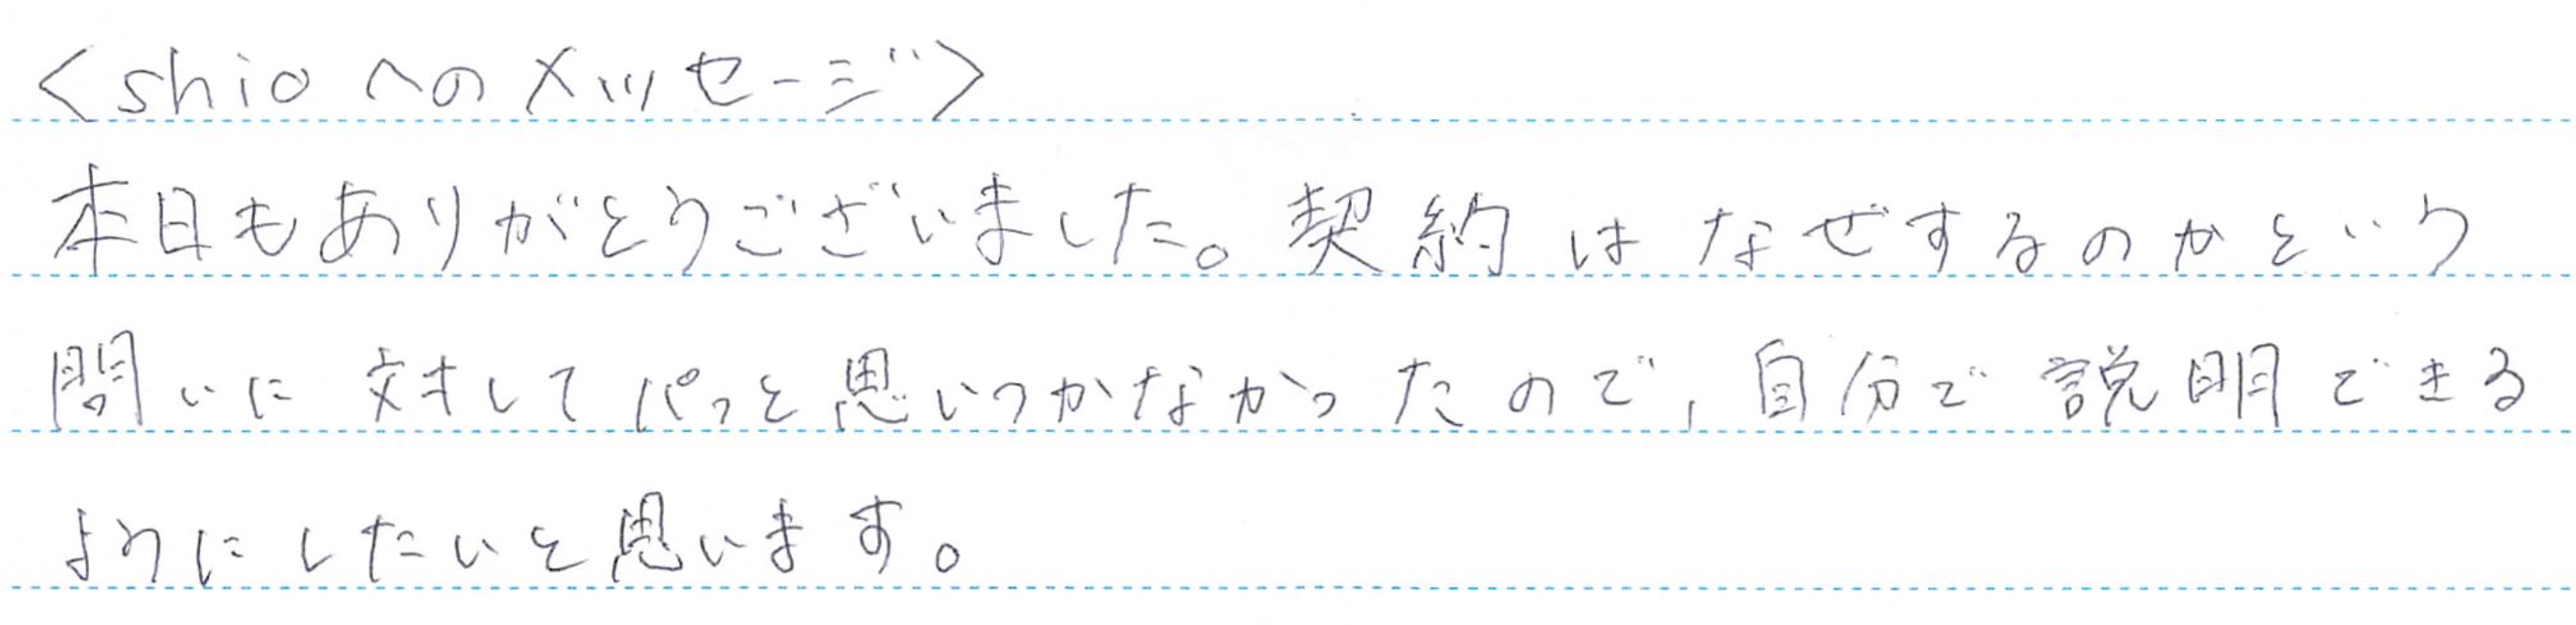 <shioへのメッセージ>
本日もありがとうございました。契約はなぜするのかという
問いに対してパっと思いつかなかったので,自分で説明できる
ようにしたいと思います。